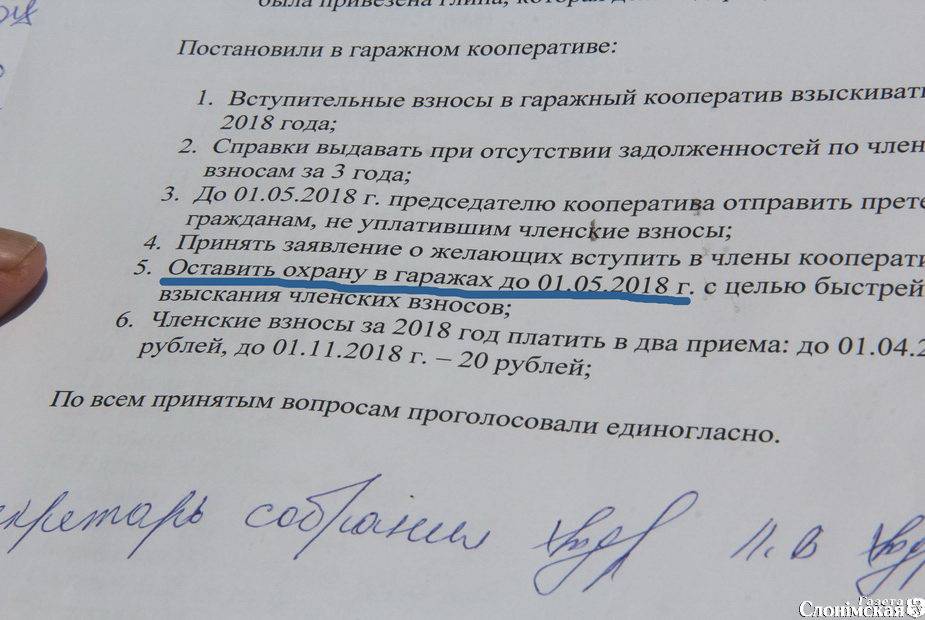 была привезена глина, которая
Постановили в гаражном кооперативе:
1. Вступительные взносы в гаражный кооператив взыскивать
2018 года;
2. Справки выдавать при отсутствии задолженностей по член
взносам за 3 года;
3. До 01.05.2018 г. председателю кооператива отправить прете
гражданам, не уплатившим членские взносы;
4. Принять заявление о желающих вступить в члены кооперати
5. Оставить охрану в гаражах до 01.05.2018 г. с целью быстрей
взыскания членских взносов;
6. Членские взносы за 2018 год платить в два приема: до 01.04.2
рублей, до 01.11.2018 г. – 20 рублей;
По всем принятым вопросам проголосовали единогласно.
екретарь собрания
Газета
Слонімская